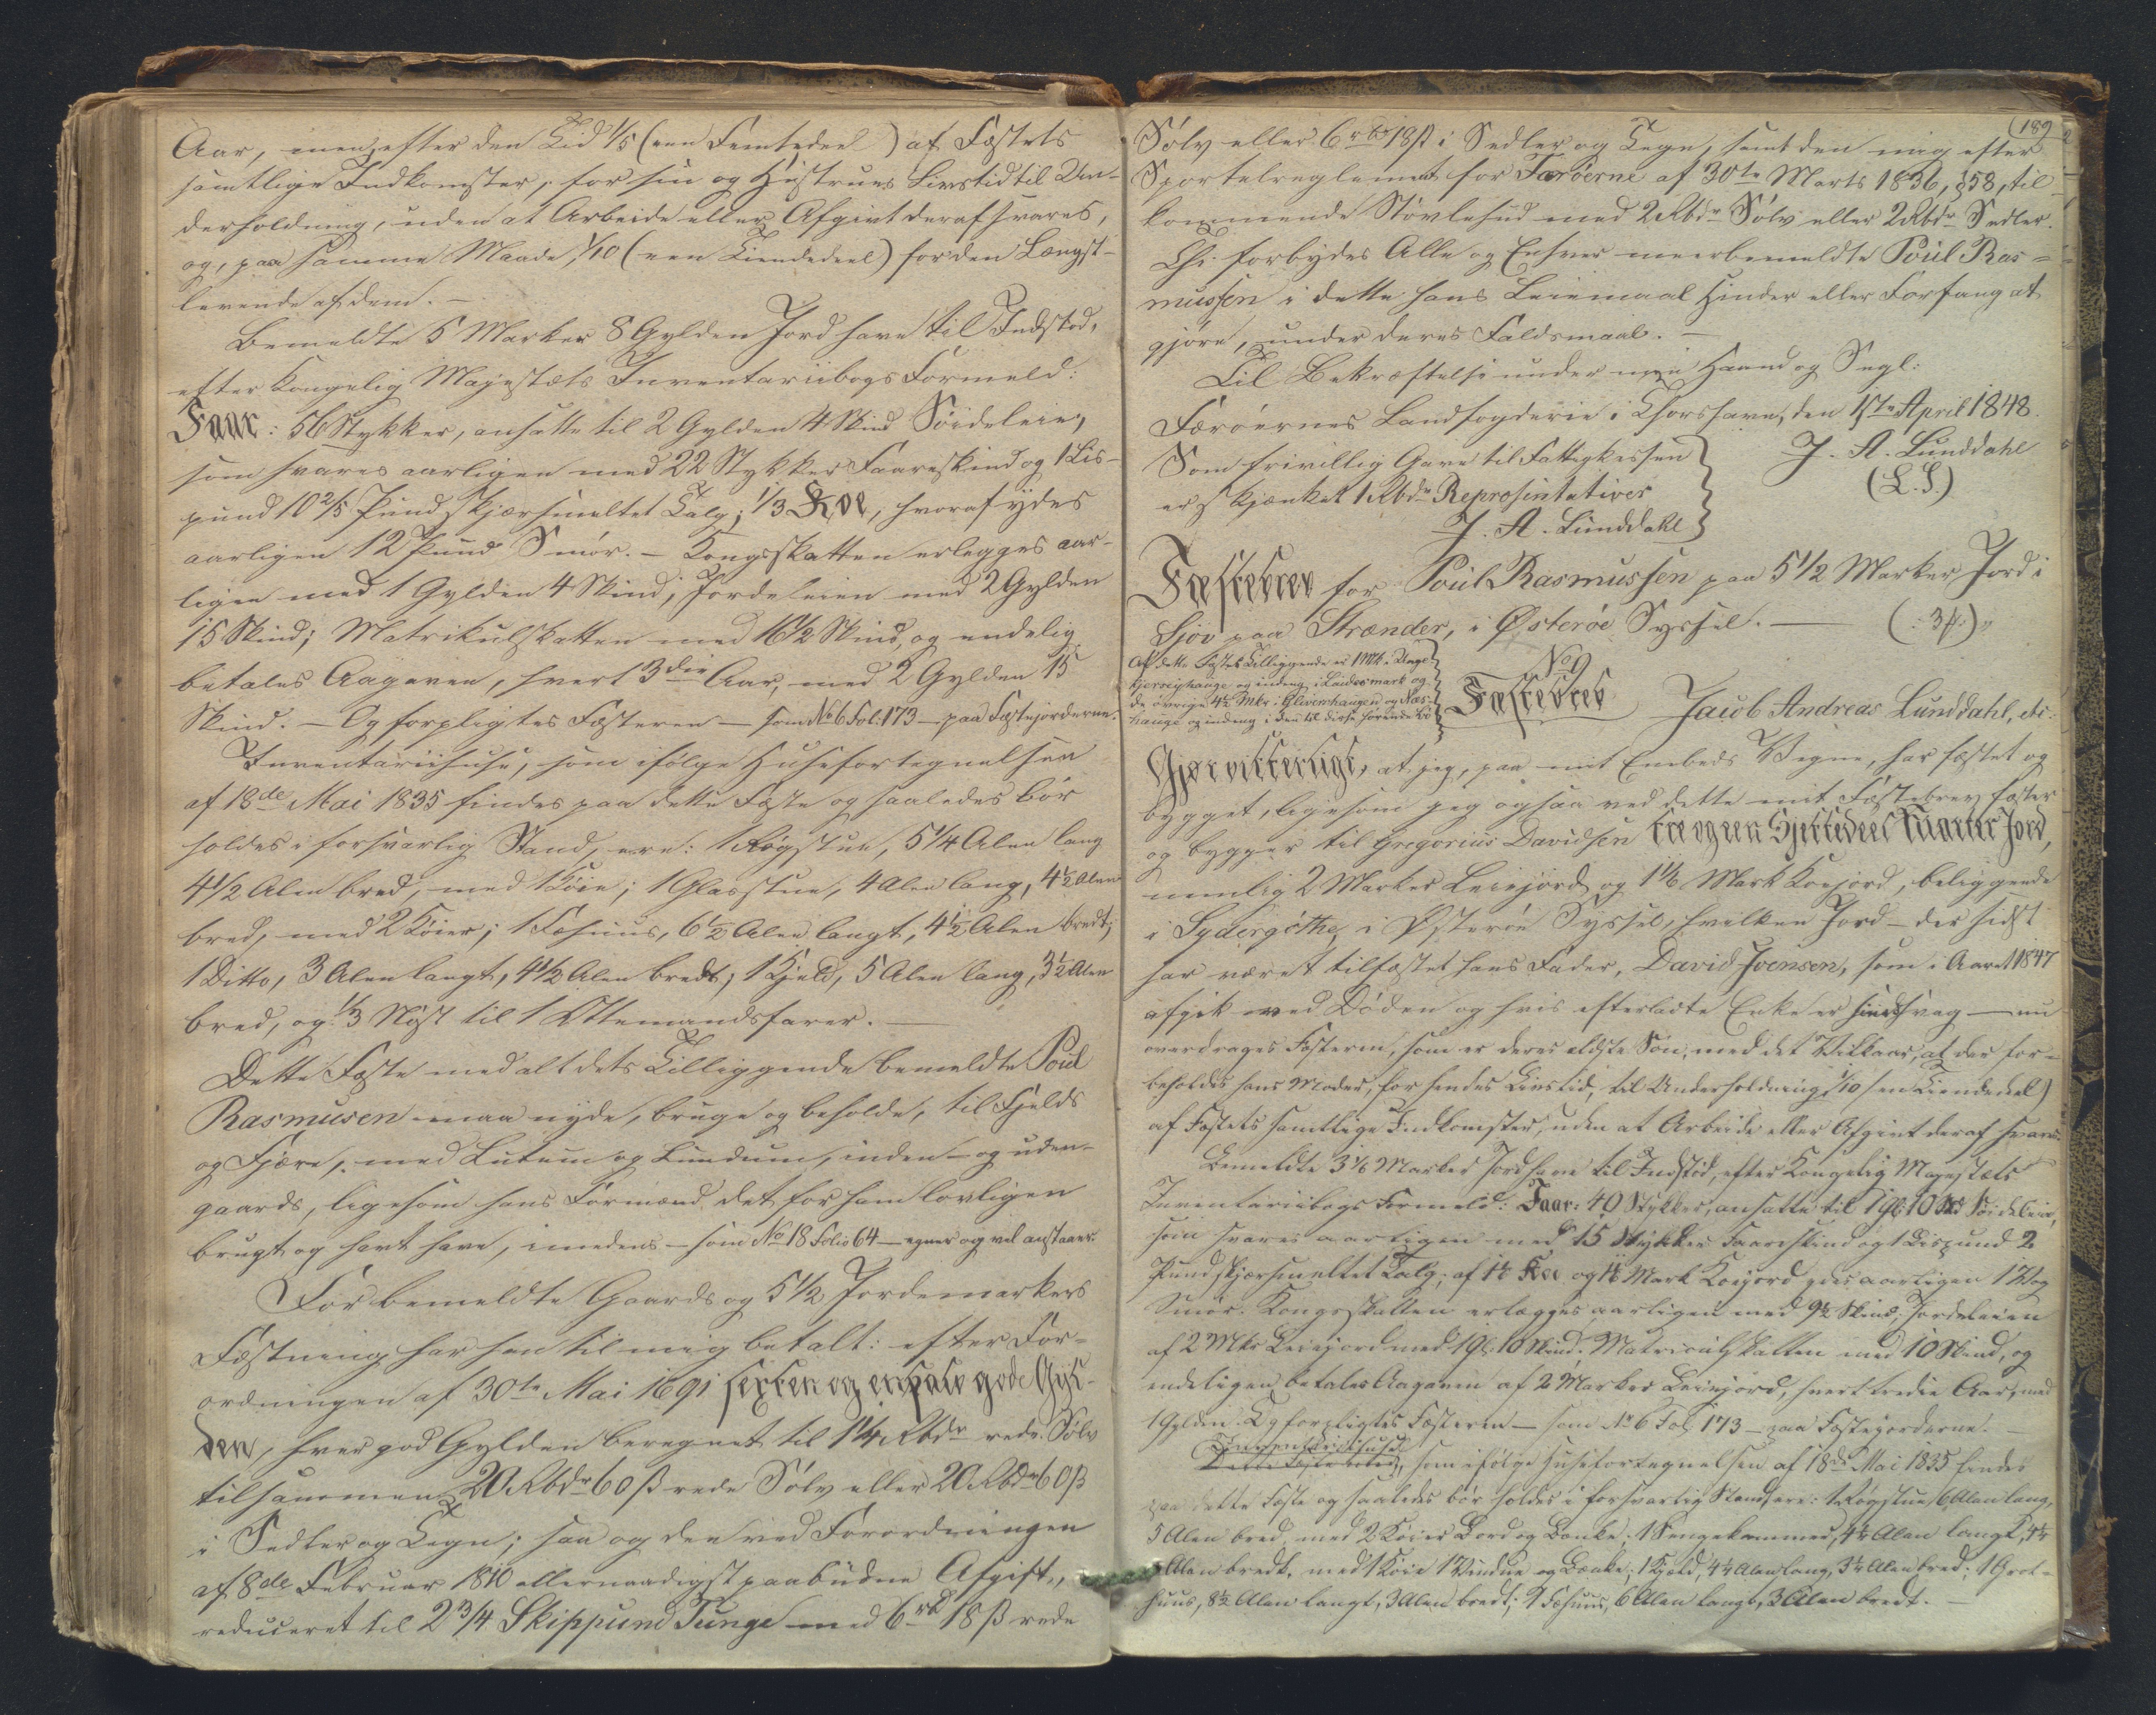 Aar, men efter den Tid 1/5 (een Femtedeel) af Fæstets
samtlige Indkomster, for sin og Hustrues Livstid til Un-
derholdning, uden at Arbeide eller Afgivt deraf svares,
og, paa samme Maade, 1/10 (een Tiendedeel) for den Længst-
levende af dem. —
Bemeldte 5 Marker 8 Gylden Jord have til Indstød,
efter Kongelig Majestæts Inventariibogs Formeld:
Faar: 56 Stykker, ansatte til 2 Gylden 4 Skind Søideleie,
som svares aarligen med 22 Stykker Faareskind og 1 Lis-
pund 10 2/5 Pund skjærsmeltet Talg; 1/3 Koe, hvoraf ydes
aarligen 12 Pund Smør. — Kongsskatten erlægges aar-
ligen med 1 Gylden 4 Skind; Jordeleien med 2 Gylden
15 Skind; Matrikulskatten med 16 1/2 Skind, og endelig
betales Aagaven, hvert 3die Aar, med 2 Gylden 15
Skind. — Og forpligtes Fæsteren — som No 6 Fol: 173 — paa Fæstejorderne.
Inventariihuse, som ifølge Husefortegnelsen
af 18de Mai 1835 findes paa dette Fæste og saaledes bør
holdes i forsvarlig Stand, ere: 1 Røgstue, 5 1/4 Alen lang
4 1/2 Alen bred, med 1 Køie; 1 Glasstue, 4 Alen lang, 4 1/2 Alen
bred, med 2 Køier; 1 Fæhuus, 6 1/2 Alen langt, 4 1/2 Alen bredt;
1 Ditto, 3 Alen langt, 4 1/2 Alen bredt; 1 Kjeld, 5 Alen lang, 3 1/2 Alen
bred, og 1/3 Nøst til 1 Ottemandsfarer. —
Dette Fæste med alt dets Tilliggende bemeldte Poul
Rasmusen maa nyde, bruge og beholde, til Fjelds
og Fjære, med Lutum og Lundum, inden- og uden-
gaards, ligesom hans Formænd det før ham lovligen
brugt og havt have, imedens — som No 18 Folio 64 — egner og vel anstaaer.
For bemeldte Gaards og 5 1/2 Jordemarkers
Fæstning har han til mig betalt: efter For-
ordningen af 30te Mai 1691 sexten og enhalv gode Gyl-
den, hver god Gylden beregnet til 1 1/4 Rbdr rede Sølv
tilsammen 20 Rbdr 60 ß rede Sølv eller 20 Rbdr 60 ß
i Sedler og Tegn; saa og den ved Forordningen
af 8de Februar 1810 allernaadigst paabudne Afgift,
reduceret til 2 3/4 Skippund Tunge med 6 rbd 18 ß rede
189
Sølv eller 6 rbd 18 ß i Sedler og Tegn, samt den mig efter
Sportelreglement for Færøerne af 30te Marts 1836, § 58, til-
kommende Støvlehud med 2 Rbdr Sølv eller 2 Rbdr Sedler.
Thi forbydes Alle og Enhver meerbemeldte Poul Ras-
mussen i dette hans Leiemaal Hinder eller Forfang at
gjøre, under deres Faldsmaal. —
Til Bekræftelse under min Haand og Segl:
Færøernes Landfogderie i Thorshavn, den 1ste April 1848.
Som frivillig Gave til Fattigkassen
er skjænket 1 Rbdr Repræsentativer
J. A. Lunddahl
J. A. Lunddahl
(L. S.)
Fæstebrev for Poul Rasmussen paa 5 1/2 Marker Jord i
Sjov paa Strænder, i Østerøe Syssel. — (: 3ß:)
Af dette Fæstes Tilliggende er 1 Mk i Unge-
og indeng i Laidesmark og
de øvrige 4 1/2 Mkr. i Glivershaugen og Næs-
hauge og indeng i den til disse hørende Bø
No 9
Fæstebrev
Jacob Andreas Lunddahl, etc.
Gjør vitterligt, at jeg, paa mit Embeds Vegne, har fæstet og
bygget, ligesom jeg ogsaa ved dette mit Fæstebrev fæster
og bygger til Gregorius Davidsen tre og een Sjettedeel Marker Jord,
nemlig 2 Marker Leiejord og 1 1/6 Mark Koejord, beliggende
i Sydergöthe, i Østerøe Syssel, hvilken Jord — der sidst
har været tilfæstet hans Fader, David Joensen, som i Aaret 1847
afgik ved Døden og hvis efterladte Enke er sindssvag — nu
overdrages Fæsteren, som er deres ældste Søn, med det Vilkaar, at der for-
beholdes hans Moder, for hendes Livstid, til Underholdning, 1/10 (en Tiendedeel)
af Fæstets samtlige Indkomster, uden at Arbeide eller Afgivt deraf svares.
Bemeldte 3 1/6 Marker Jord have til Indstød, efter Kongelig Majestæts
Inventariibogs Formeld: Faar: 40 Stykker, ansatte til 1 Gl: 10 Skd Søideleie,
som svares aarligen med 15 Stykker Faareskind og 1 Lispund 2
Pund skjærsmeltet Talg; af 1 1/2 Koe og 1 1/6 Mark Koejord gives aarligen 1 Vog
Smør. Kongsskatten erlægges aarligen med 9 1/2 Skind; Jordeleien
af 2 Mkr Leiejord med 1 Gl: 10 Skind. Matrikulskatten med 10 Skind, og
endeligen betales Aagaven af 2 Marker Leiejord, hvert tredie Aar, med
1 Gylden. Og forpligtes Fæsteren — som No 6 Fol 173 — paa Fæstejorderne. —
Inventariihuse
som ifølge Husefortegnelsen af 18de Mai 1835 findes
paa dette Fæste og saaledes bør holdes i forsvarlig Stand, ere: 1 Røgstue, 6 Alen lang,
5 Alen bred, med 2 Køier Bord og Bænke; 1 Sengekammer, 4 1/2 Alen langt, 4 1/2
Alen bredt, med 1 Køie 1 Vindue og Bænke; 1 Kjeld, 4 1/2 Alen lang, 3 1/2 Alen bred; 1 Grot-
huus, 8 1/2 Alen langt, 3 Alen bredt; 1 Fæhuus, 6 Alen langt, 3 Alen bredt. —